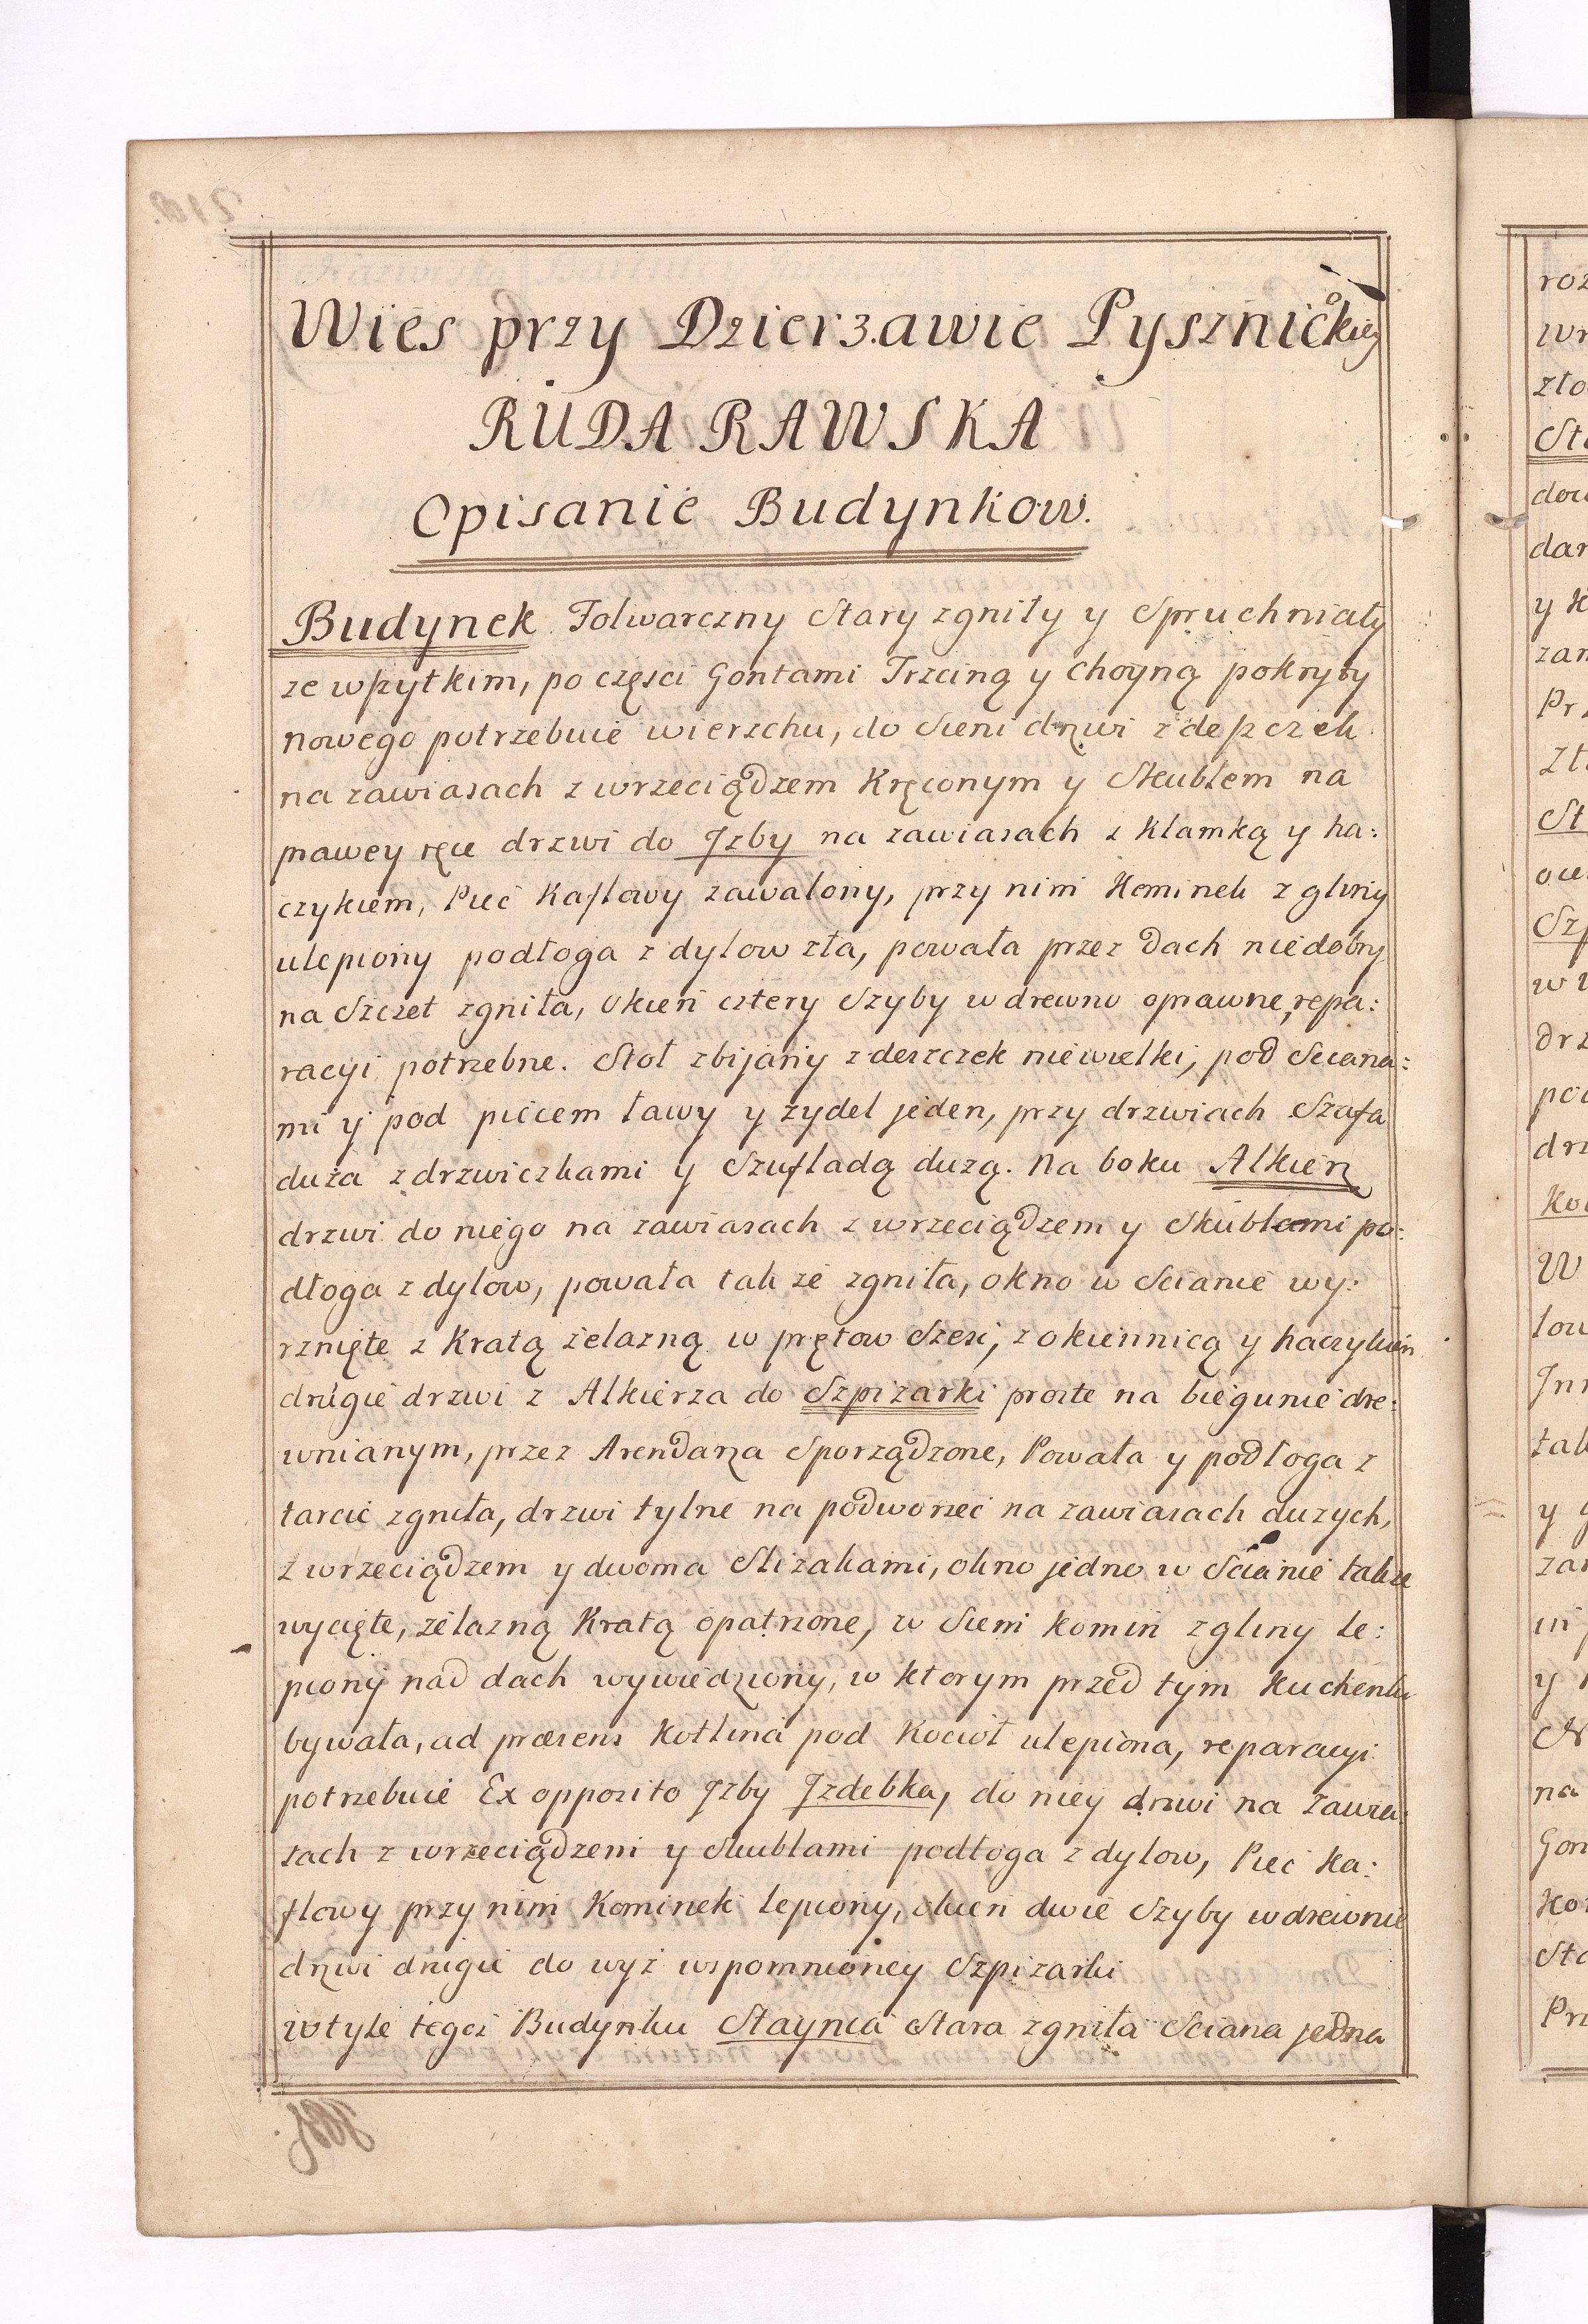 Wies przy Dzierzawie Pysznickiey
RUDA RAWSKA
Opisanie Budynkow.
Budynek Folwarczny Stary zgniły y Spruchniały
ze wszytkim, po częsci Gontami Trzciną y Choyną pokryty
nowego potrzebuie wierzchu, do Sieni drzwi z deszczek
na zawiasach z wrzeciądzem Kręconym y Skublem na
prawey ręce drzwi do Jzby na zawiasach z Klamką y ha:
czykiem, Piec Kaflowy zawalony, przy nim Kominek z gliny
ulepiony podłoga z dylow zła, powała przez dach niedobry
na Szczet zgniła, Okien cztery Szyby w drewno oprawne, repa:
racyi potrzebne. Stoł zbijany z deszczek niewielki, pod Sciana:
mi y pod piecem ławy y zydel jeden, przy drzwiach Szafa
duża z drzwiczkami y Szufladą duzą. Na boku Alkierz
drzwi do niego na zawiasach z wrzeciądzem y Skublami po:
dłoga z dylow, powała tak ze zgniła, okno w Scianie wy:
rznięte z Kratą żelazną w prętow Szesc, z okiennicą y haczykiem
drugie drzwi z Alkierza do Szpizarki proste na biegunie dre:
wnianym, przez Arendarza Sporządzone, Powała y podłoga z
tarcic zgniła, drzwi tylne na podworzec na zawiasach duzych,
z wrzeciądzem y dwoma Skizakami, okno jedno w Scianie takze
wycięte, zelazną Kratą opatrzone, w Sieni komin z gliny le:
piony nad dach wywiedziony, w ktorym przed tym Kuchenka
bywała, ad præsens Kotlina pod Kocioł ulepiona, reparacyi
potrzebuie Ex opposito Jzby Jzdebka, do niey drzwi na zawia:
sach z wrzeciądzem y Skublami podłoga z dylow, Piec Ka:
flowy przy nim Kominek lepiony, okien dwie Szyby w drewnie
drzwi drugie do wyż wspomnioney Szpizarki
w tyle tegoż Budynku Staynia Stara zgniła Sciana jedna